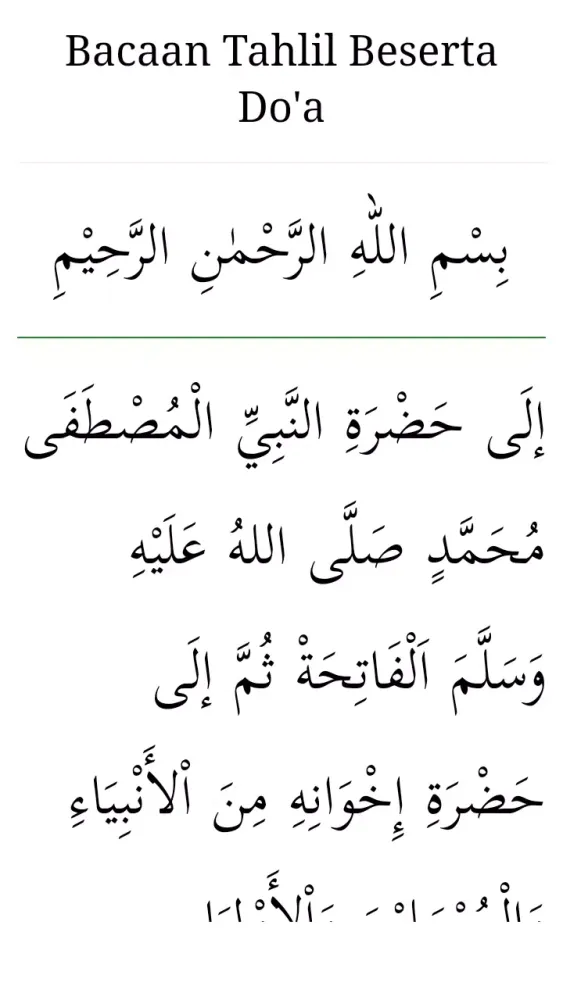 Bacaan Tahlil Beserta
Do'a
بِسْمِ اللّٰهِ الرَّحْمٰنِ الرَّحِيْمِ
إِلَى حَضْرَةِ النَّبِيِّ الْمُصْطَفَى
مُحَمَّدٍ صَلَّى اللهُ عَلَيْهِ
وَسَلَّمَ اَلْفَاتِحَةْ ثُمَّ إِلَى
حَضْرَةِ إِخْوَانِهِ مِنَ اْلأَنْبِيَاءِ